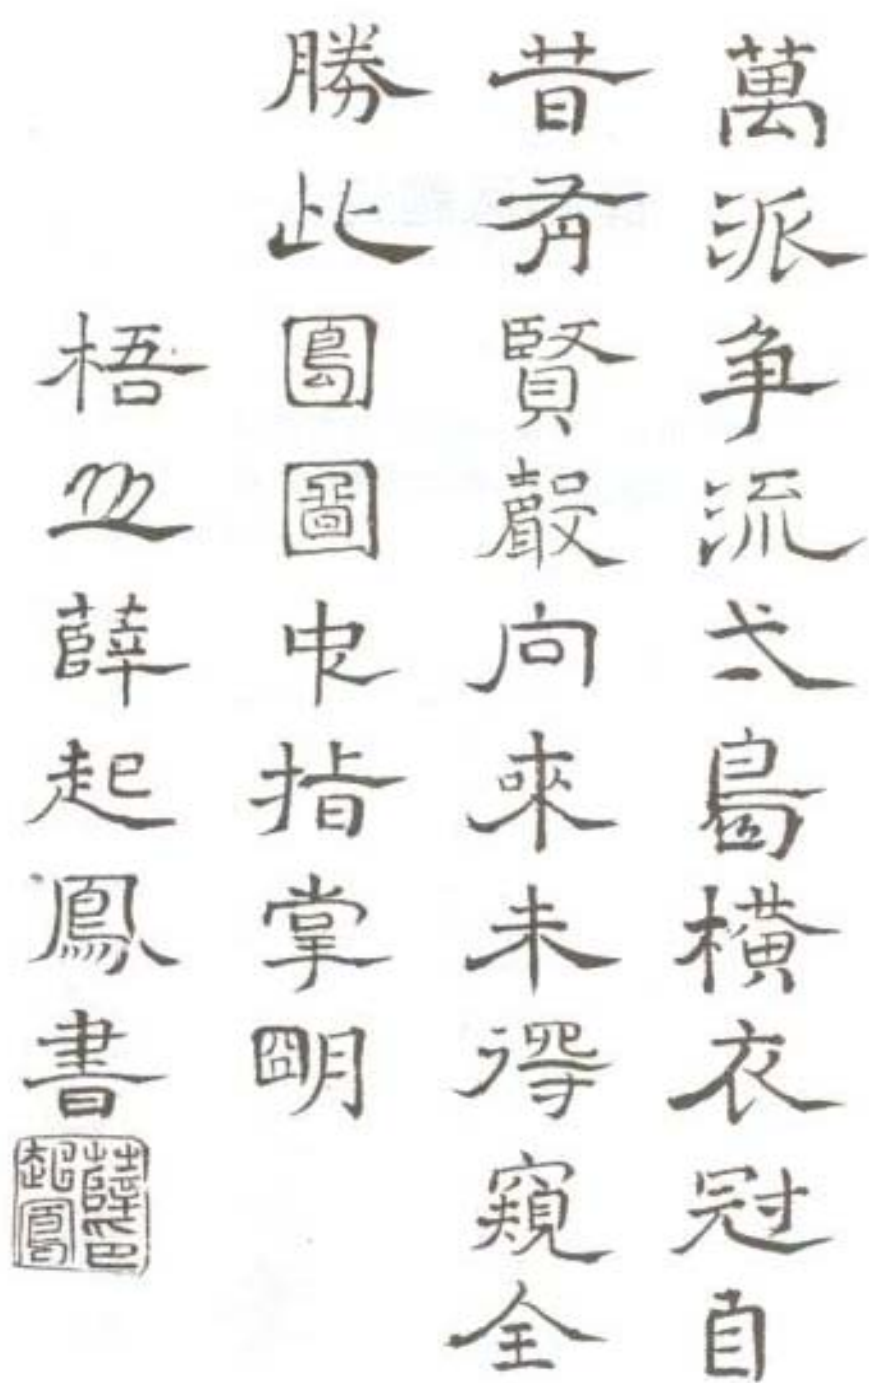 萬派争流弌島橫衣冠自
昔有賢聲向來未得窺全
勝此圖中指掌朙
梧山薛起鳳書
薛印起鳳